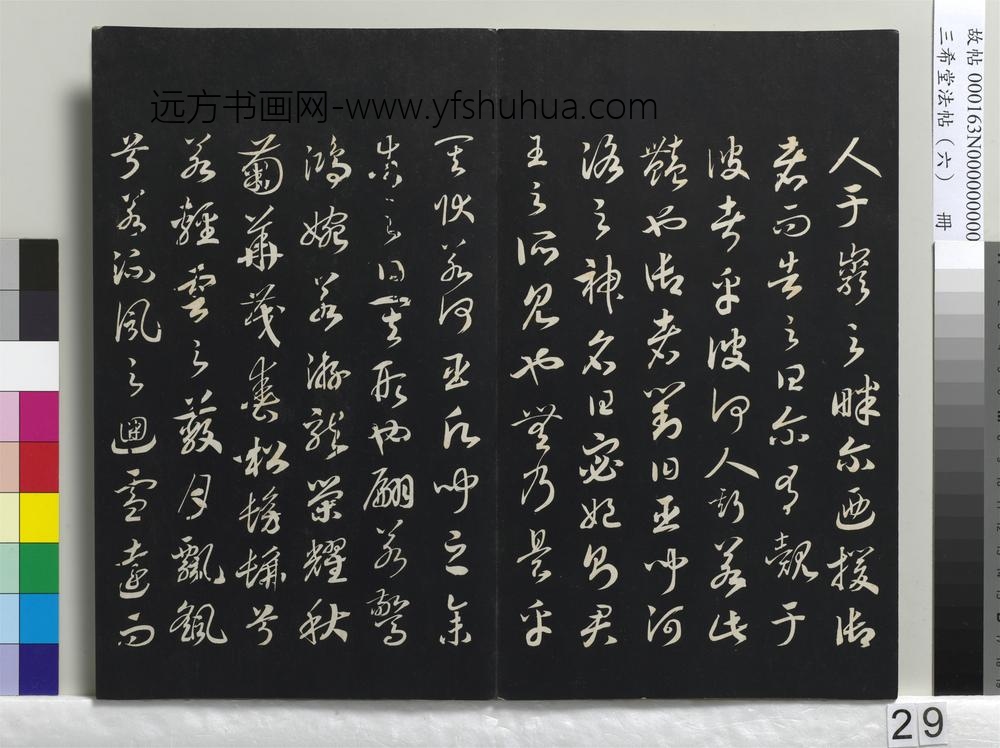 人于巖之畔尔迺援御
者而告之曰尔有覿于
彼者乎彼何人斯若此
豔也御者對曰臣聞河
洛之神名曰宓妃則君
王之所見也無乃是乎
其狀若何臣願聞之余
告之曰其形也翩若驚
鴻婉若游龍榮耀秋
菊華茂春松髣髴兮
若輕雲之蔽月飄飖
兮若流風之迴雪遠而
远方书画网-www.yfshuhua.com
故帖 000163N000000000
三希堂法帖（六） 冊
29